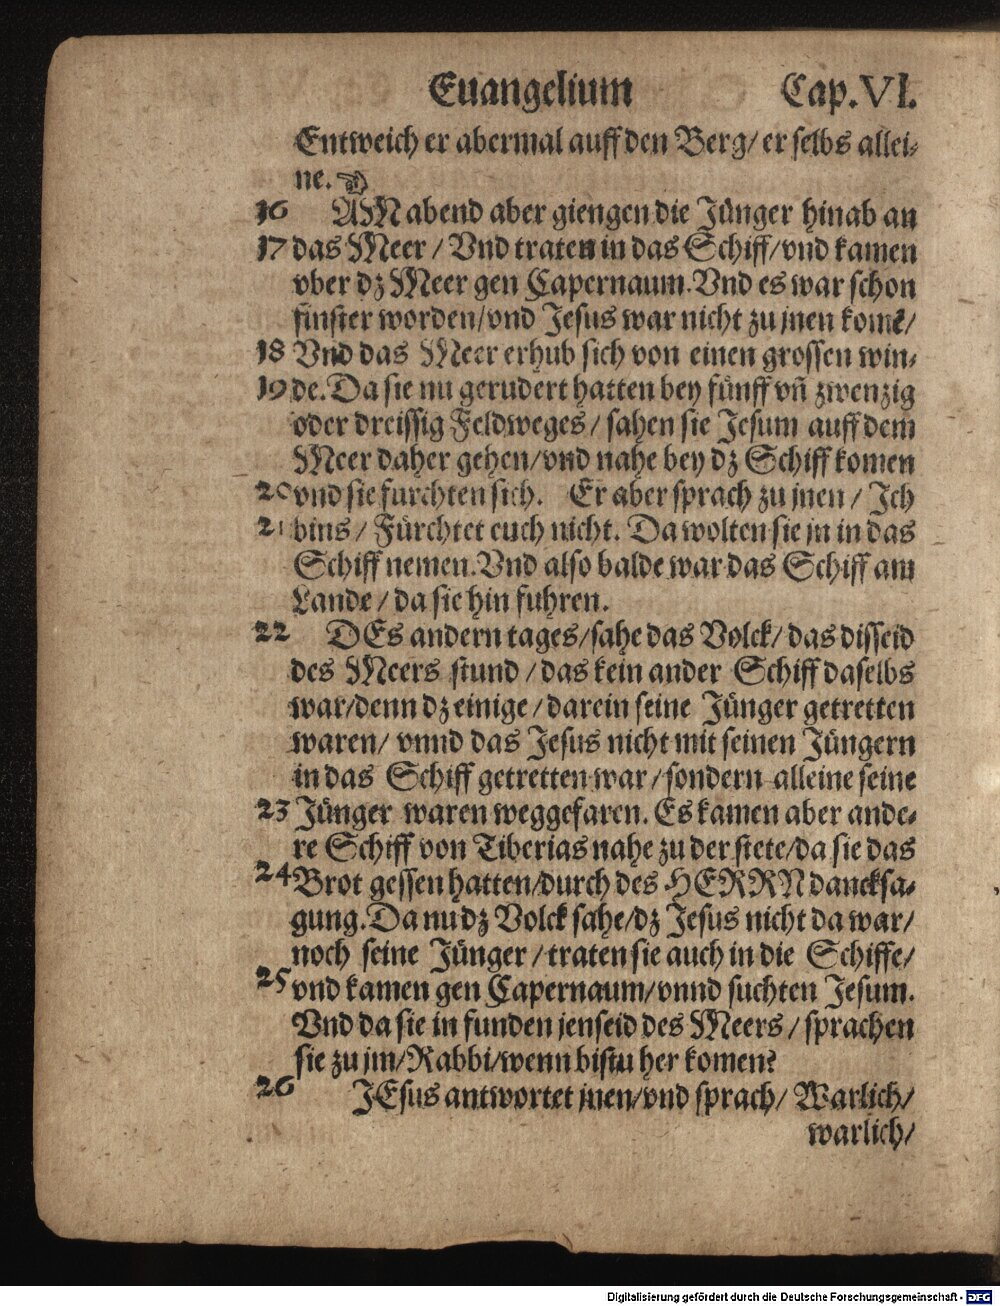 Euangelium Cap. VI.
Entweich er abermal auff den Berg/ er selbs allei-
ne. ☞
16 AM abend aber giengen die Jünger hinab an
17 das Meer / Vnd traten in das Schiff/ vnd kamen
vber dz Meer gen Capernaum. Vnd es war schon
finster worden/ vnd Jesus war nicht zu jnen komē/
18 Vnd das Meer erhub sich von einen grossen win-
19 de. Da sie nu gerudert hatten bey fünff vñ zwenzig
oder dreissig Feldweges / sahen sie Jesum auff dem
Meer daher gehen/ vnd nahe bey dz Schiff komen
20 vnd sie furchten sich. Er aber sprach zu jnen / Ich
21 bins / Fürchtet euch nicht. Da wolten sie jn in das
Schiff nemen. Vnd also balde war das Schiff am
Lande / da sie hin fuhren.
22 DEs andern tages/ sahe das Volck/ das disseid
des Meers stund / das kein ander Schiff daselbs
war/ denn dz einige / darein seine Jünger getretten
waren/ vnnd das Jesus nicht mit seinen Jüngern
in das Schiff getretten war / sondern alleine seine
23 Jünger waren weggefaren. Es kamen aber ande-
re Schiff von Tiberias nahe zu der stete/ da sie das
24 Brot gessen hatten/ durch des HERRN dancksa-
gung. Da nu dz Volck sahe/ dz Jesus nicht da war/
noch seine Jünger / traten sie auch in die Schiffe/
25 vnd kamen gen Capernaum/ vnnd suchten Jesum.
Vnd da sie in funden jenseid des Meers / sprachen
sie zu jm/ Rabbi/ wenn bistu her komen?
26 JEsus antwortet jnen/ vnd sprach/ Warlich/
warlich/
Digitalisierung gefördert durch die Deutsche Forschungsgemeinschaft - DFG